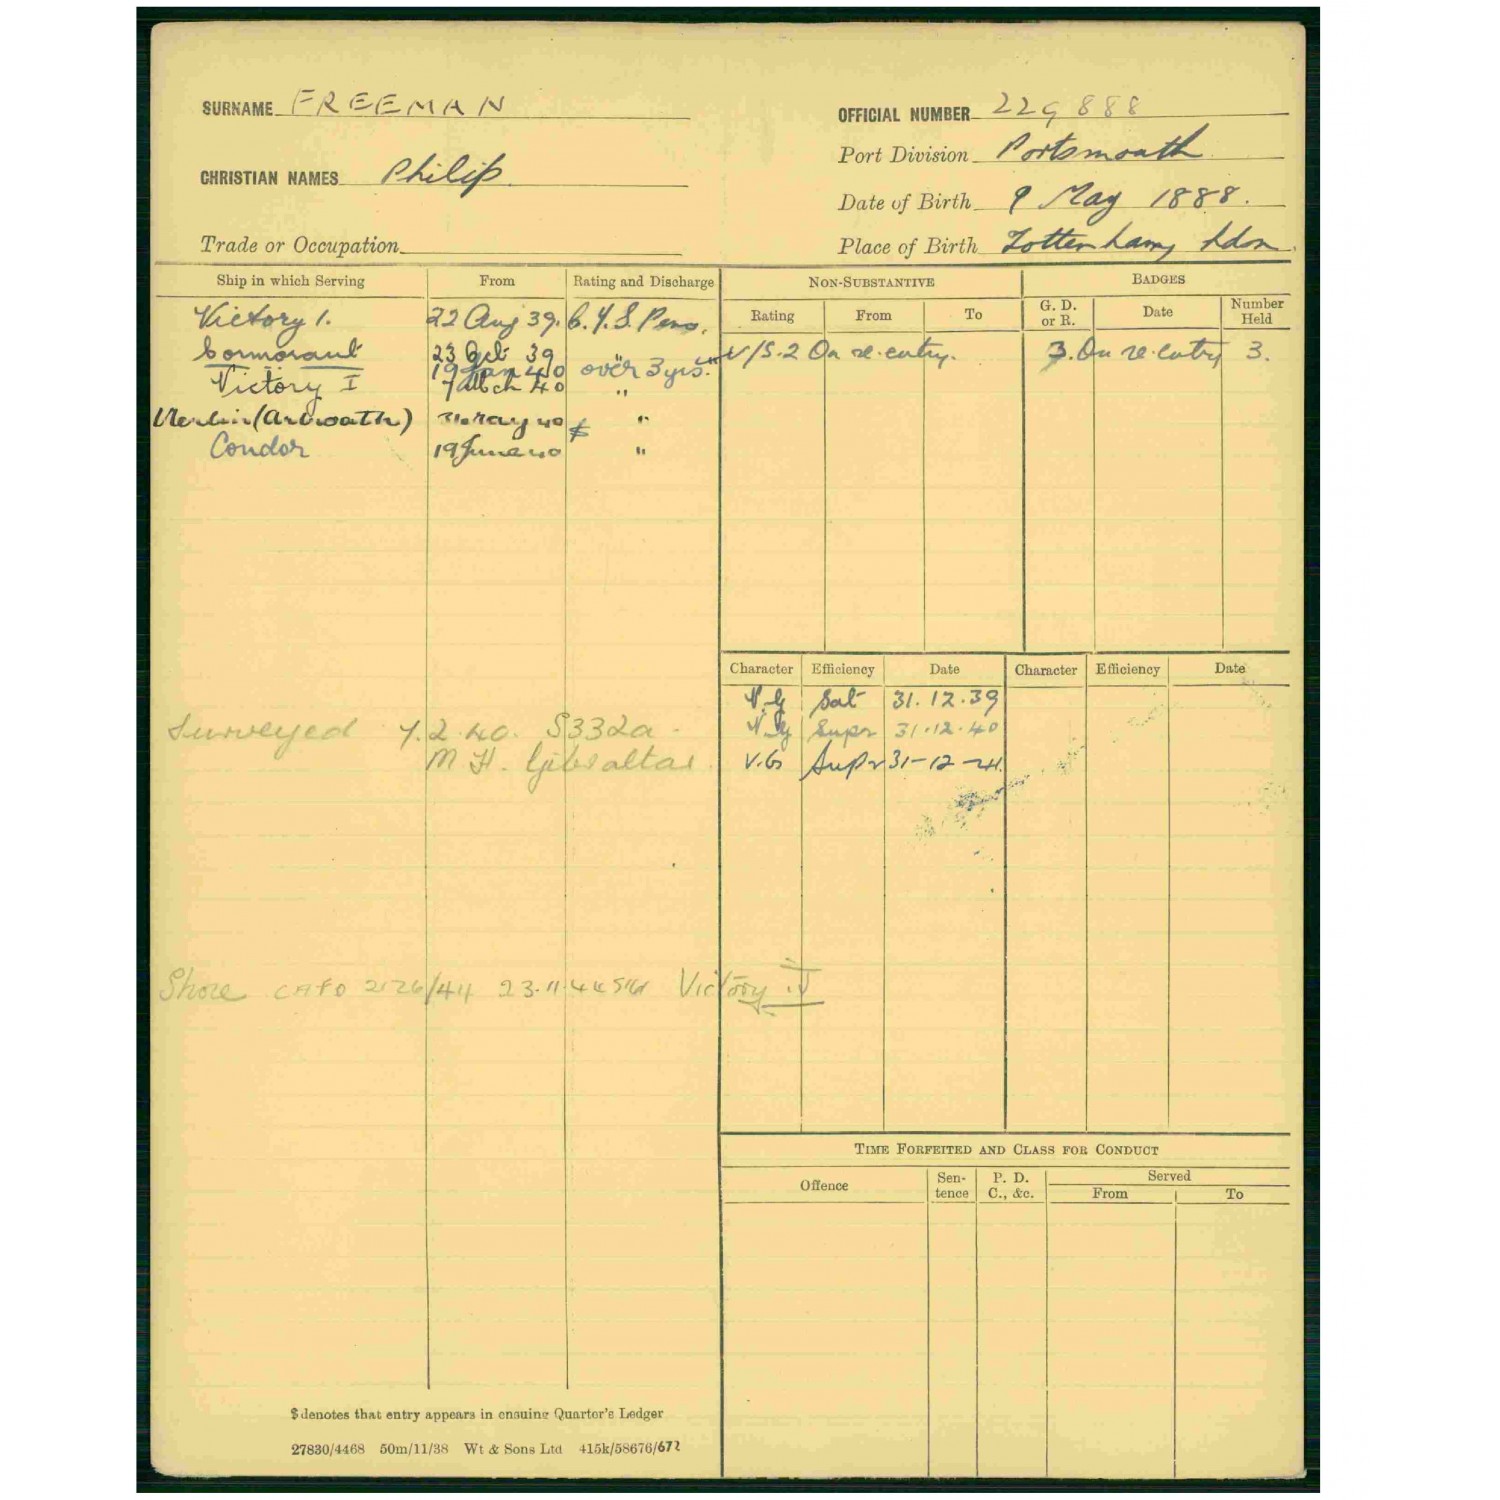 SURNAME FREEMAN
OFFICIAL NUMBER 229888
Port Division Portsmouth
CHRISTIAN NAMES Philip
Date of Birth 9 May 1888.
Trade or Occupation
Place of Birth Tottenham, Ldon
Ship in which Serving From Rating and Discharge NON-SUBSTANTIVE BADGES
Rating From To G. D. or R. Date Number Held
Victory 1. 22 Aug 39. C.Y.S. Pens.
Cormorant 23 Oct 39 " V/S.2 On re-entry. 3. On re-entry 3.
19 Jan 40 over 3 yrs.
Victory I 7 Mch 40 "
Merlin (Arbroath) May 40 $ "
Condor 19 June 40 "
Character Efficiency Date Character Efficiency Date
V.G Sat 31.12.39
V.G Supr 31.12.40
V.G Supr 31-12-41.
Surveyed 7.2.40. S332a.
M H. Gibraltar
Shore CAFO 2126/44 23.11.44 Victory IV
TIME FORFEITED AND CLASS FOR CONDUCT
Offence Sen-tence P. D. C., &c. Served
From To
$ denotes that entry appears in ensuing Quarter's Ledger
27830/4468 50m/11/38 Wt & Sons Ltd 415k/58676/672